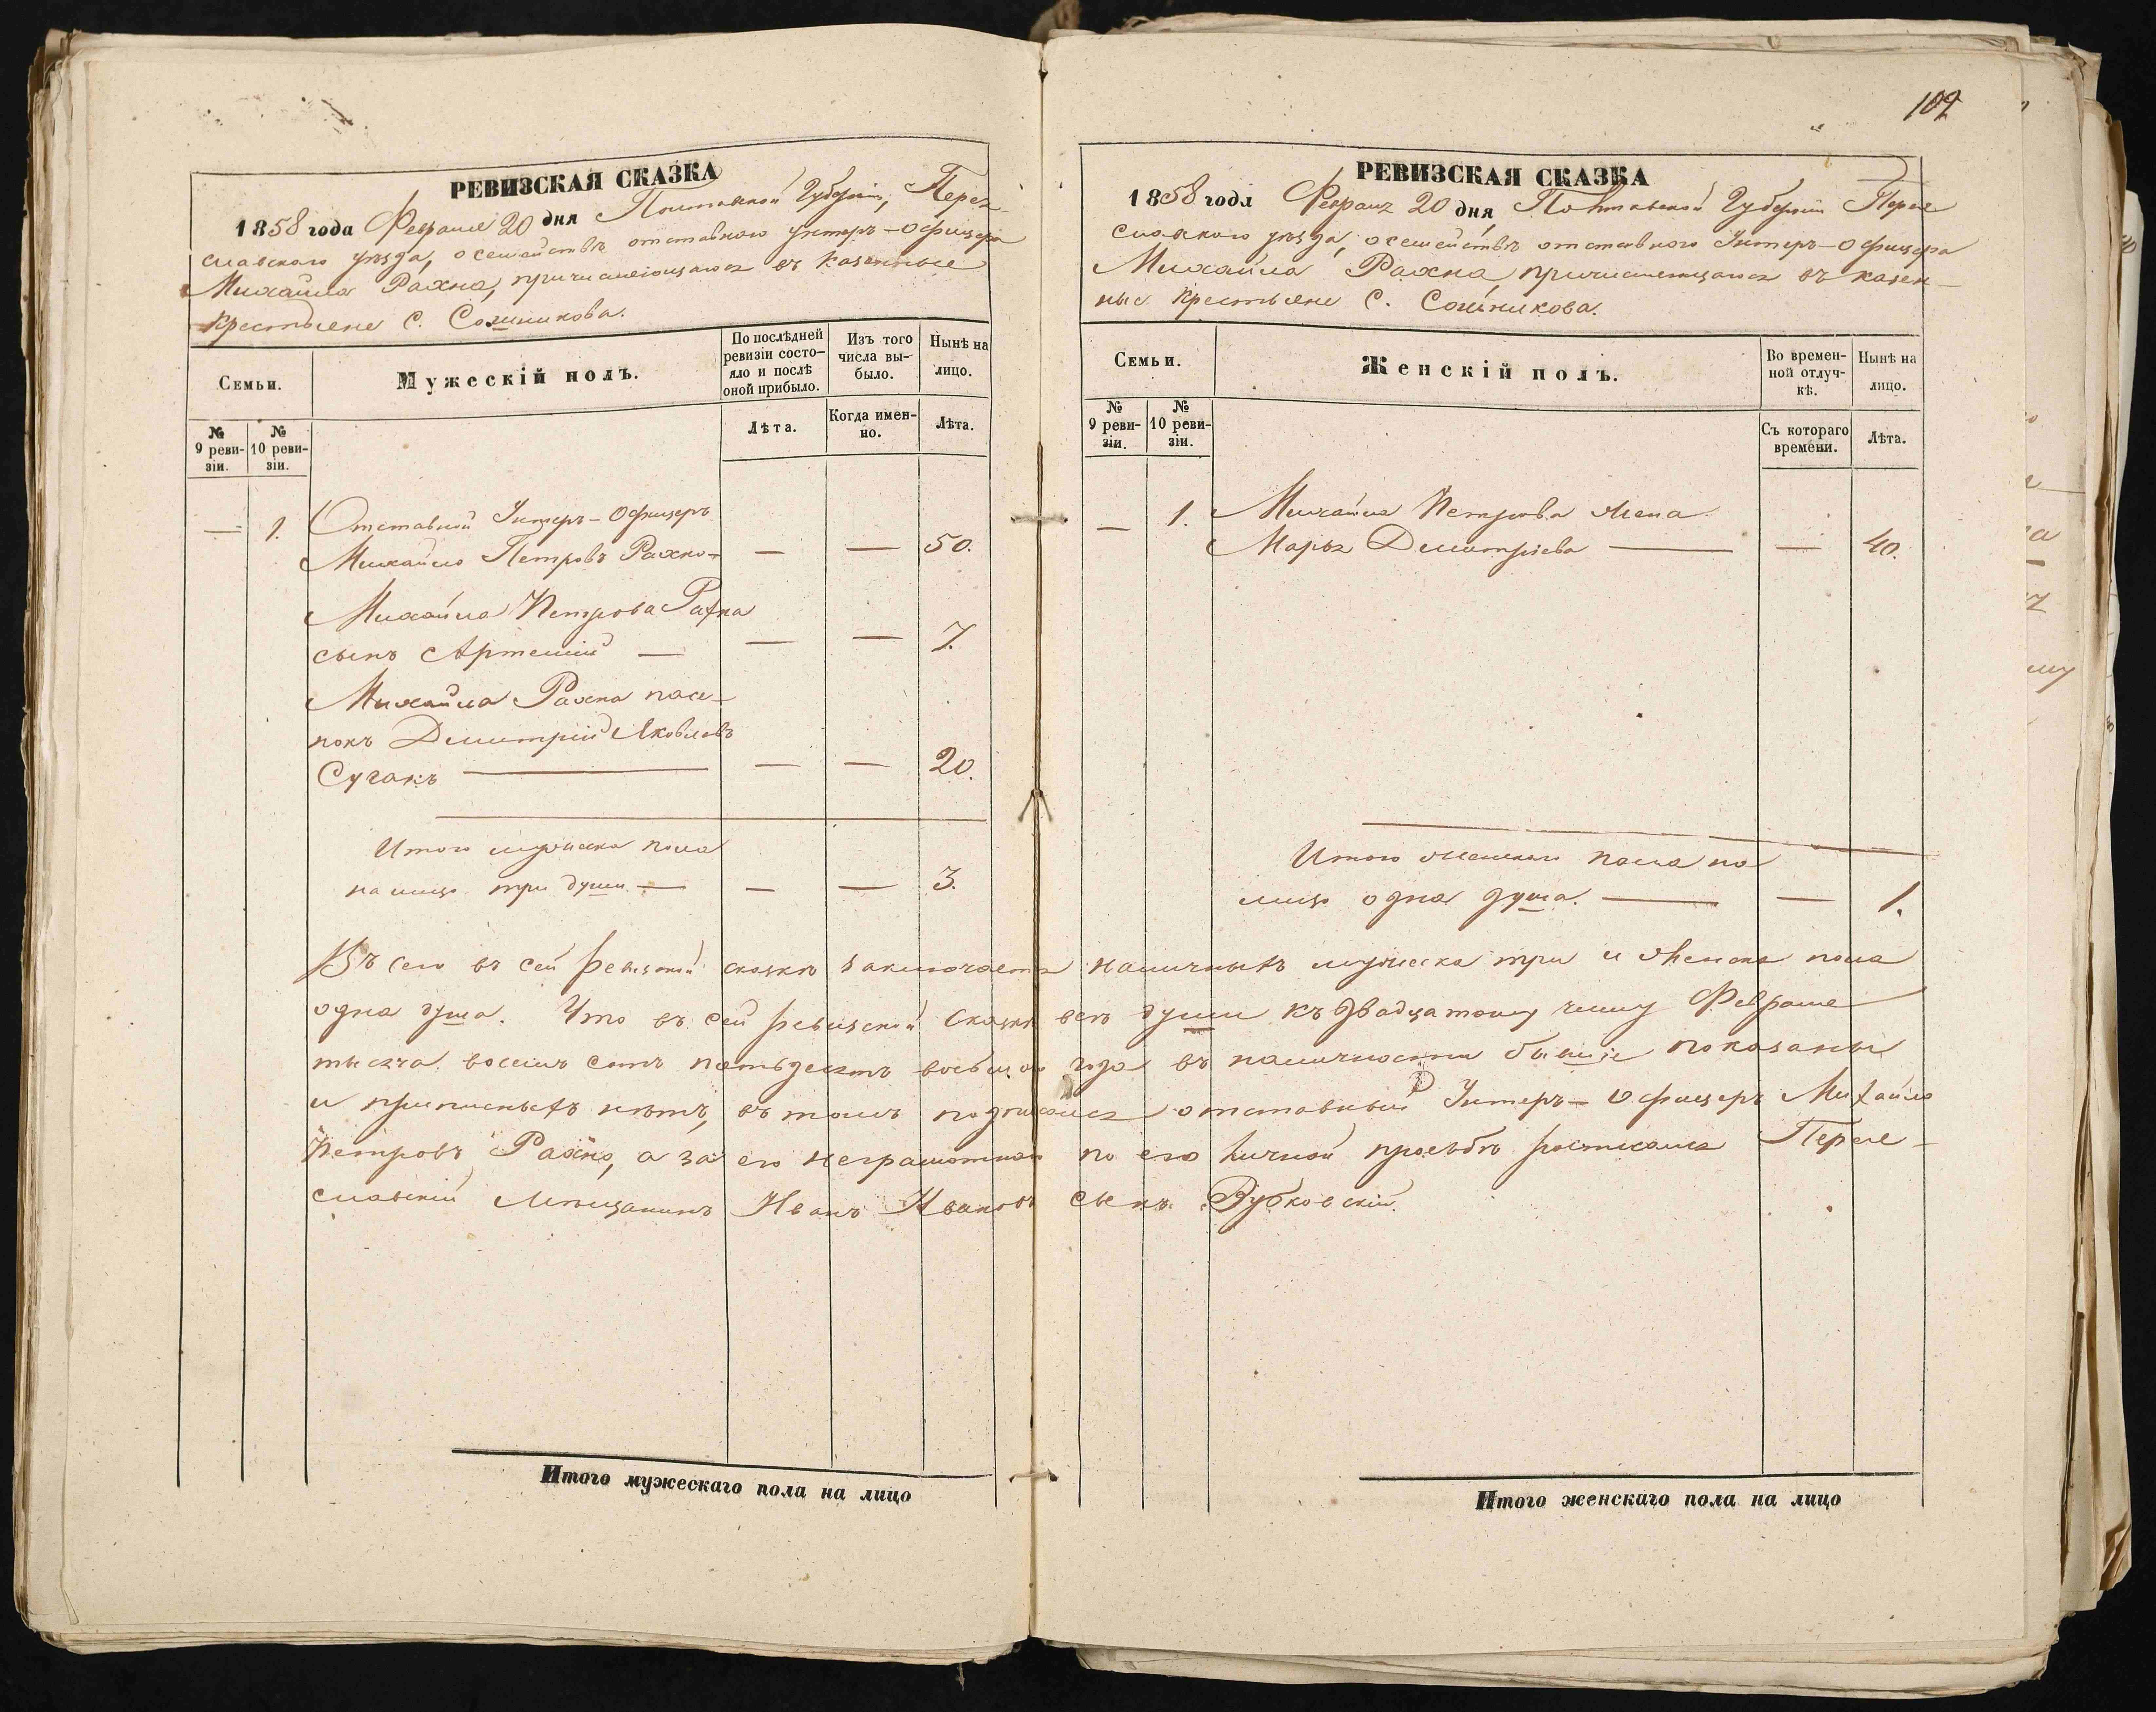 РЕВИЗСКАЯ СКАЗКА
1858 года Февраля 20 дня Полтавской Губерніи, Перея-
славскаго уѣзда, о семействѣ отставного унтеръ-офицера
Михайла Рахна, причисляющагося въ казенные
крестьяне С. Сошникова.
Семьи.
Мужескій полъ.
По послѣдней ревизіи состо-
яло и послѣ оной прибыло.
Изъ того числа вы-
было.
Нынѣ на лицо.
№ 9 реви-
зіи.
№ 10 реви-
зіи.
Лѣта.
Когда имен-
но.
Лѣта.
— 1. Отставной Унтеръ-Офицеръ
Михайло Петровъ Рахно — — — 50.
Михайла Петрова Рахна
сынъ Артемій — — — 7.
Михайла Рахна пасы-
нокъ Димитрій Яковлевъ
Сугакъ — — — 20.
Итого мужеска пола
на лицо три души — — — 3.
Итого мужескаго пола на лицо
109
РЕВИЗСКАЯ СКАЗКА
1858 года Февраля 20 дня, Полтавской Губерніи Перея
славскаго уѣзда, о семействѣ отставного Унтеръ-Офицера
Михайла Рахна, причисляющагося въ казен-
ные крестьяне С. Сошникова.
Семьи.
Женскій полъ.
Во времен-
ной отлуч-
кѣ.
Нынѣ на лицо.
№ 9 реви-
зіи.
№ 10 реви-
зіи.
Съ котораго времени.
Лѣта.
— 1. Михайла Петрова жена
Марья Димитріева — — 40.
Итого женскаго пола на
лицо одна душа. — — 1.
Всего въ сей ревизской сказкѣ заключается наличныхъ мужеска три и женска пола
одна душа. Что въ сей ревизской сказкѣ всѣ души къ двадцатому числу Февраля
тысяча восемь сотъ пятьдесятъ восьмого года въ наличности бывшіе показаны
и прописныхъ нѣтъ, въ томъ подписался отставный Унтеръ-Офицеръ Михайло
Петровъ Рахно, а за его неграмотнаго по его личной просьбѣ росписался Перея-
славскій Мѣщанинъ Иванъ Ивановъ сынъ Зубковскій.
Итого женскаго пола на лицо